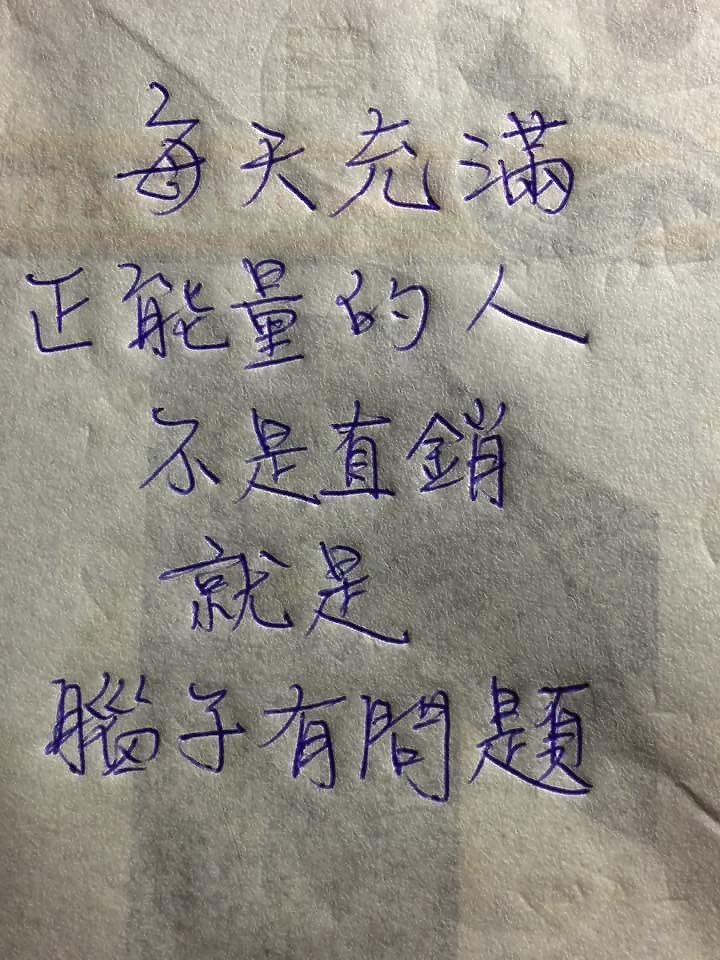 每天充滿
正能量的人
不是直銷
就是
腦子有問題